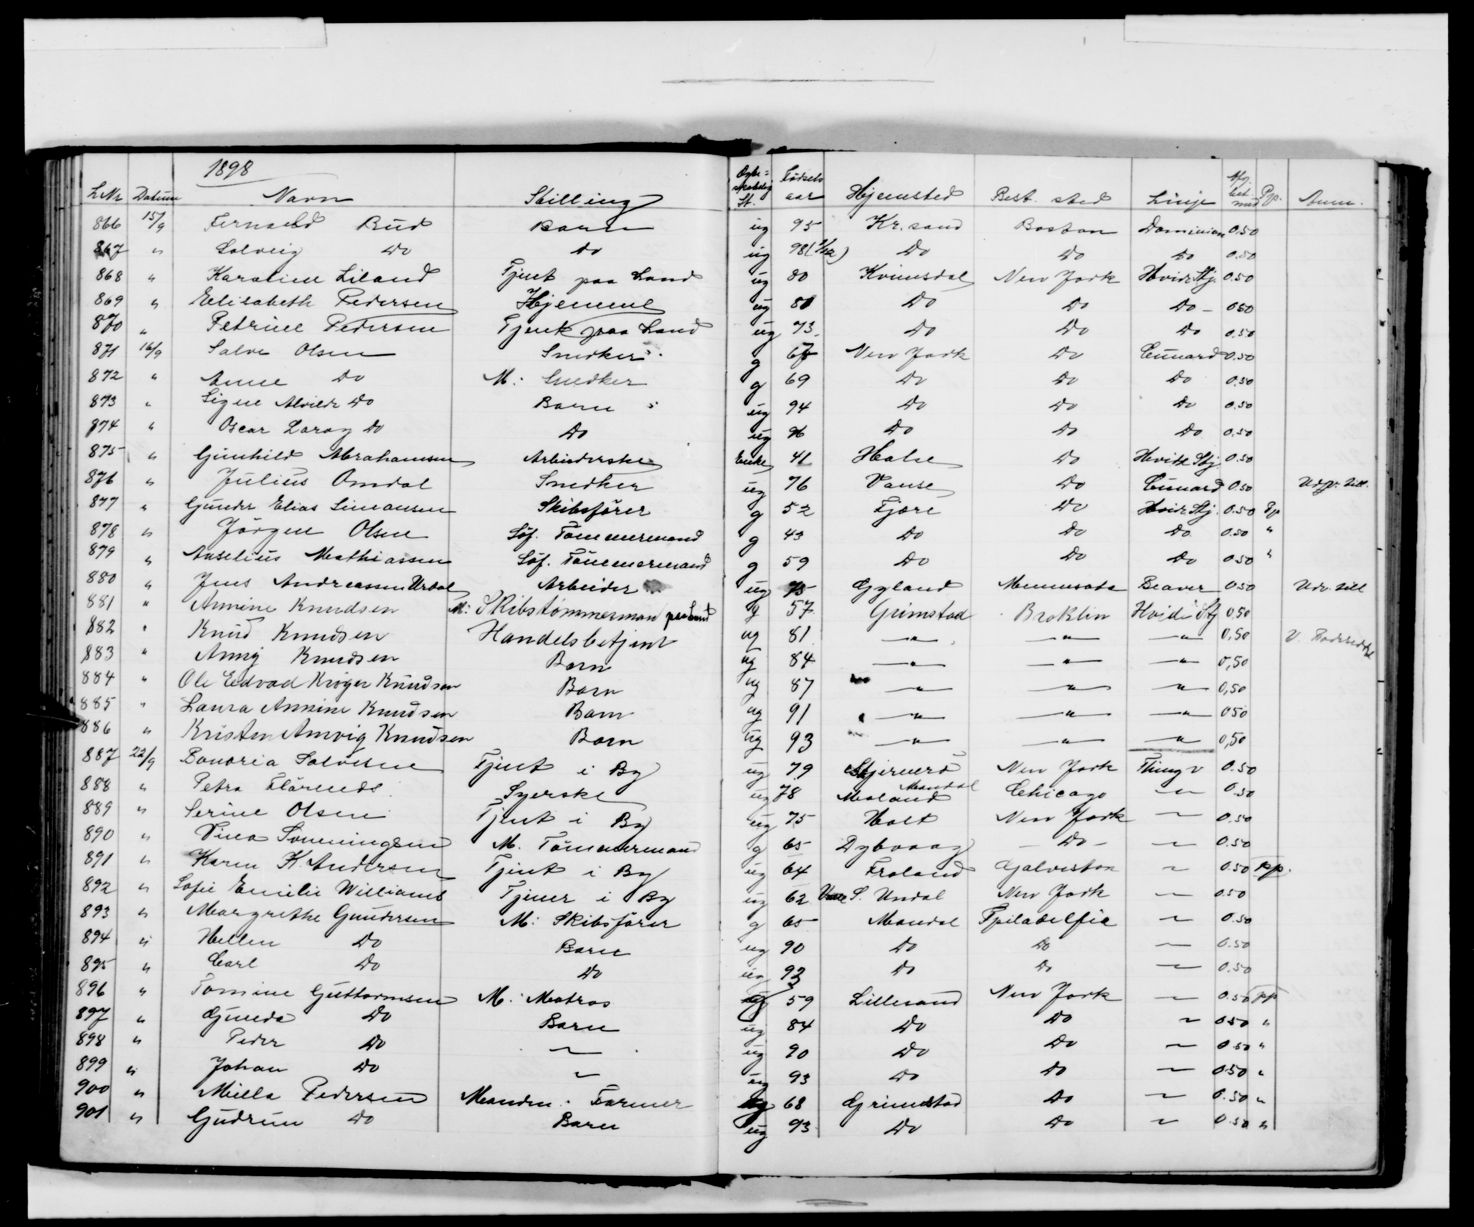 1898
L.Nr Datum Navn Stilling Ægte-skabelig St. Fødselsaar Hjemsted Best. sted Linje Afg. bet. med Pp. Anm.
866 15/9 Bud Barn ug 95 Kr.sand Boston Dominion 0.50
867 " Solveig Do Do ug 98 Do Do Do 0.50
868 " Karoline Liland Tjent paa Land ug 80 Kvinesdal New York Hvide Stj. 0.50
869 " Elisabeth Pedersen Hjemme ug 80 Do Do Do 050
870 " Petrine Pedersen Tjent paa Land ug 73 Do Do Do 0.50
871 16/9 Salve Olsen Snedker g 67 New York Do Cunard 0.50
872 " Anne Do M: Snedker g 69 Do Do Do 0.50
873 " Signe Alvilde Do Barn ug 94 Do Do Do 0.50
874 " Oscar Do Do ug 96 Do Do Do 0.50
875 " Gunhild Abrahamsen Arbeiderske Enke 41 Halse Do Hvite Stj 0.50
876 " Julius Omdal Snedker ug 76 Vanse Do Cunard 0.50
877 " Gunder Elias Simonsen Skibsfører g 52 Fjære Do Hvide Stj. 0.50 Pp
878 " Jörgen Olsen Söf. Tömmermand g 43 Do Do Do 0.50 "
879 " Anselius Mathiassen Söf. Tömmermand g 59 Do Do Do 0.50 "
880 " Jens Andreassen Urdal Arbeider ug 75 Gyland Minnesota Beaver 0.50
881 " Annine Knudsen M: Skibstømmerman g 57 Grimstad Broklin Hvide Stj 0,50
882 " Knud Knudsen Handelsbetjent ug 81 — " — — " — — " — 0,50
883 " Anny Knudsen Barn ug 84 — " — — " — — " — 0,50
884 " Ole Edvad Krøger Knudsen Barn ug 87 — " — — " — — " — 0,50
885 " Laura Annine Knudsen Barn ug 91 — " — — " — — " — 050
886 " Kristen Amvig Knudsen Barn ug 93 — " — — " — — " — 0,50
887 22/9 Tjent i By ug 79 New York Thingv 0.50
888 " Petra Syerske ug 78 Moland Mandal Chicago — 0.50
889 " Serine Olsen Tjent i By ug 75 Holt New York — 0.50
890 " Tina M. Tömmermand g 65 Dybvaag — Do — — 0.50
891 " Karen K Andersen Tjent i By ug 64 Froland Galveston — 0.50 pp.
892 " Sofie Emilie Williams Tjener i By ug 62 S. Undal New York — 0.50
893 " Margrethe Gundersen M: Skibsfører g 65 Mandal Fpiladelfia — 0.50
894 " Hellen Do Barn ug 90 Do Do — 0.50
895 " Carl Do Do ug 93 Do Do — 0.50
896 " Tomine Guttormsen M: Matros g 59 Lillesand New York — 0.50 pp
897 " Gunda Do Barn ug 84 Do Do — 0.50 "
898 " Peder Do — ug 90 Do Do — 0.50 "
899 " Johan Do — ug 93 Do Do — 0.50 "
900 " Milla Pedersen Manden: Farmer g 68 Grimstad Do — 0.50 "
901 " Gudrun Do Barn ug 93 Do Do — 0.50 "